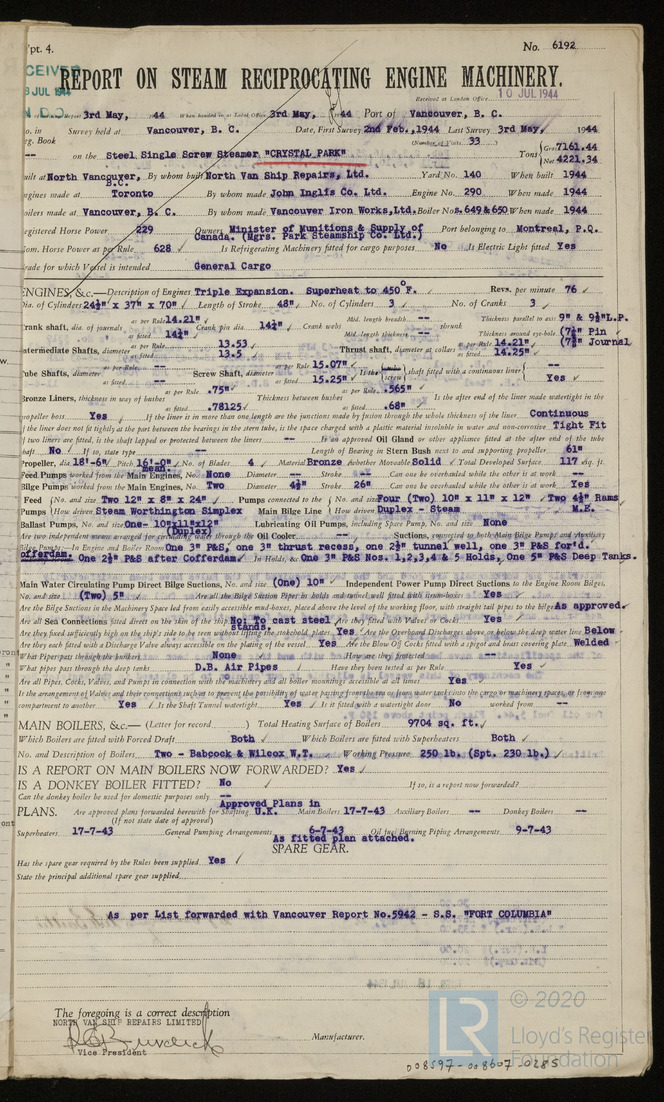 pt. 4. No. 6192
REPORT ON STEAM RECIPROCATING ENGINE MACHINERY.
Received at London Office 10 JUL 1944
Report 3rd May, 44 When handed in at Local Office 3rd May, 44 Port of Vancouver, B. C.
Survey held at Vancouver, B. C. Date, First Survey 2nd Feb., 1944 Last Survey 3rd May, 1944
Book (Number of Visits 33)
on the Steel Single Screw Steamer "CRYSTAL PARK" Tons Gross 7161.44
Net 4221.34
built at North Vancouver, B.C. By whom built North Van Ship Repairs, Ltd. Yard No. 140 When built 1944
Engines made at Toronto By whom made John Inglis Co. Ltd. Engine No. 290 When made 1944
Boilers made at Vancouver, B. C. By whom made Vancouver Iron Works, Ltd. Boiler Nos. 649 & 650 When made 1944
Registered Horse Power 229 Owners Minister of Munitions & Supply of Canada. (Mgrs. Park Steamship Co. Ltd.) Port belonging to Montreal, P.Q.
Nom. Horse Power as per Rule 628 Is Refrigerating Machinery fitted for cargo purposes No Is Electric Light fitted Yes
Trade for which Vessel is intended General Cargo
ENGINES, &c.—Description of Engines Triple Expansion. Superheat to 450°F. Revs. per minute 76
Dia. of Cylinders 24½" x 37" x 70" Length of Stroke 48" No. of Cylinders 3 No. of Cranks 3
Crank shaft, dia. of journals as per Rule 14.21" as fitted 14¼" Crank pin dia. 14¼" Crank webs Mid. length breadth -- Mid. length thickness -- shrunk Thickness parallel to axis 9" & 9½"L.P. Thickness around eye-hole (7½" Pin (7⅞" Journal
Intermediate Shafts, diameter as per Rule 13.53 as fitted 13.5 Thrust shaft, diameter at collars as per Rule 14.21" as fitted 14.25"
Tube Shafts, diameter as per Rule -- as fitted -- Screw Shaft, diameter as per Rule 15.07" as fitted 15.25" Is the screw shaft fitted with a continuous liner -- Yes
Bronze Liners, thickness in way of bushes as per Rule .75" as fitted .78125 Thickness between bushes as per Rule .565" as fitted .68" Is the after end of the liner made watertight in the
propeller boss Yes If the liner is in more than one length are the junctions made by fusion through the whole thickness of the liner Continuous
If the liner does not fit tightly at the part between the bearings in the stern tube, is the space charged with a plastic material insoluble in water and non-corrosive Tight Fit
If two liners are fitted, is the shaft lapped or protected between the liners -- Is an approved Oil Gland or other appliance fitted at the after end of the tube
shaft No If so, state type -- Length of Bearing in Stern Bush next to and supporting propeller 61"
Propeller, dia. 18'-6" Pitch 16'-0" mean. No. of Blades 4 Material Bronze whether Moveable Solid Total Developed Surface 117 sq. ft.
Feed Pumps worked from the Main Engines, No. None Diameter -- Stroke -- Can one be overhauled while the other is at work --
Bilge Pumps worked from the Main Engines, No. Two Diameter 4½" Stroke 26" Can one be overhauled while the other is at work Yes
Feed Pumps No. and size Two 12" x 8" x 24" How driven Steam Worthington Simplex Pumps connected to the Main Bilge Line No. and size Four (Two) 10" x 11" x 12" Two 4½" Rams How driven Duplex - Steam M.E.
Ballast Pumps, No. and size One- 10"x11"x12" (Duplex) Lubricating Oil Pumps, including Spare Pump, No. and size None
Are two independent means arranged for circulating water through the Oil Cooler -- Suctions, connected to both Main Bilge Pumps and Auxiliary
Bilge Pumps—In Engine and Boiler Room One 3" P&S, one 3" thrust recess, one 2½" tunnel well, one 3" P&S for'd.
cofferdam. One 2½" P&S after Cofferdam. In Holds, &c. One 3" P&S Nos. 1,2,3,4 & 5 Holds, One 5" P&S Deep Tanks.
Main Water Circulating Pump Direct Bilge Suctions, No. and size (One) 10" Independent Power Pump Direct Suctions to the Engine Room Bilges,
No. and size (Two) 5" Are all the Bilge Suction Pipes in holds and tunnel well fitted with strum-boxes Yes
Are the Bilge Suctions in the Machinery Space led from easily accessible mud-boxes, placed above the level of the working floor, with straight tail pipes to the bilges As approved.
Are all Sea Connections fitted direct on the skin of the ship No: To cast steel stands. Are they fitted with Valves or Cocks Yes
Are they fixed sufficiently high on the ship's side to be seen without lifting the stokehold plates Yes Are the Overboard Discharges above or below the deep water line Below
Are they each fitted with a Discharge Valve always accessible on the plating of the vessel Yes Are the Blow Off Cocks fitted with a spigot and brass covering plate Welded
What Pipes pass through the bunkers None How are they protected --
What pipes pass through the deep tanks D.B. Air Pipes Have they been tested as per Rule Yes
Are all Pipes, Cocks, Valves, and Pumps in connection with the machinery and all boiler mountings accessible at all times Yes
Is the arrangement of Valves and their connections such as to prevent the possibility of water passing from the sea or from water tanks into the cargo or machinery spaces, or from one
compartment to another Yes Is the Shaft Tunnel watertight Yes Is it fitted with a watertight door No worked from --
MAIN BOILERS, &c.— (Letter for record ) Total Heating Surface of Boilers 9704 sq. ft.
Which Boilers are fitted with Forced Draft Both Which Boilers are fitted with Superheaters Both
No. and Description of Boilers Two - Babcock & Wilcox W.T. Working Pressure 250 lb. (Spt. 230 lb.)
IS A REPORT ON MAIN BOILERS NOW FORWARDED? Yes
IS A DONKEY BOILER FITTED? No If so, is a report now forwarded?
Can the donkey boiler be used for domestic purposes only --
PLANS. Are approved plans forwarded herewith for Shafting Approved Plans in U.K. Main Boilers 17-7-43 Auxiliary Boilers -- Donkey Boilers --
(If not state date of approval)
Superheaters 17-7-43 General Pumping Arrangements 6-7-43 As fitted plan attached. Oil fuel Burning Piping Arrangements 9-7-43
SPARE GEAR.
Has the spare gear required by the Rules been supplied Yes
State the principal additional spare gear supplied
As per List forwarded with Vancouver Report No.5942 - S.S. "FORT COLUMBIA"
The foregoing is a correct description
NORTH VAN SHIP REPAIRS LIMITED
Manufacturer.
Vice President
008597-008607-0285
LR © 2020
Lloyd's Register
Foundation